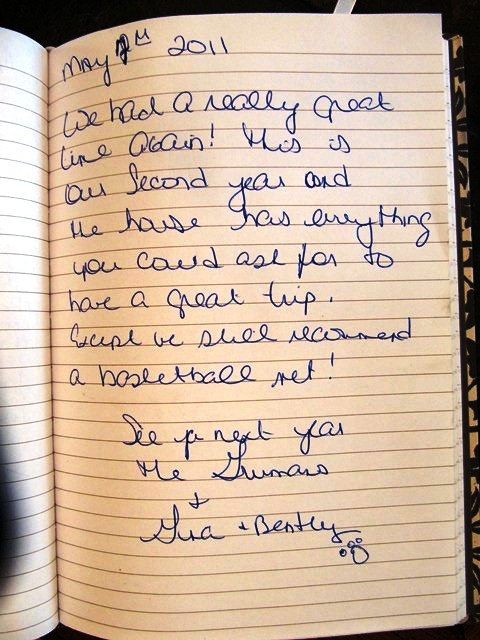 May 7th 2011
We had a really great
time again! This is
our second year and
the house has everything
you could ask for to
have a great trip.
Except we still recommend
a basketball net!
See ya next year
The
+
+ Bentley